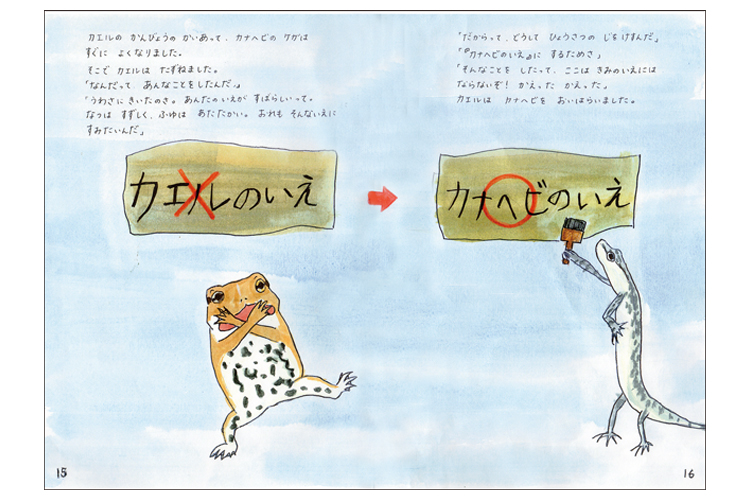 カエルの かんびょうの かいあって、カナヘビの ケガは
すぐに よくなりました。
そこで カエルは たずねました。
「なんだって、あんなことをしたんだ。」
「うわさにきいたのさ。あんたのいえが すばらしいって。
なつは すずしく、ふゆは あたたかい。おれも そんないえに
すみたいんだ」
カエルのいえ
15
「だからって、どうして ひょうさつの じをけすんだ」
「『カナヘビのいえ』に するためさ」
「そんなことを したって、ここは きみのいえには
ならないぞ！かえった かえった」
カエルは カナヘビを おいはらいました。
カナヘビのいえ
16